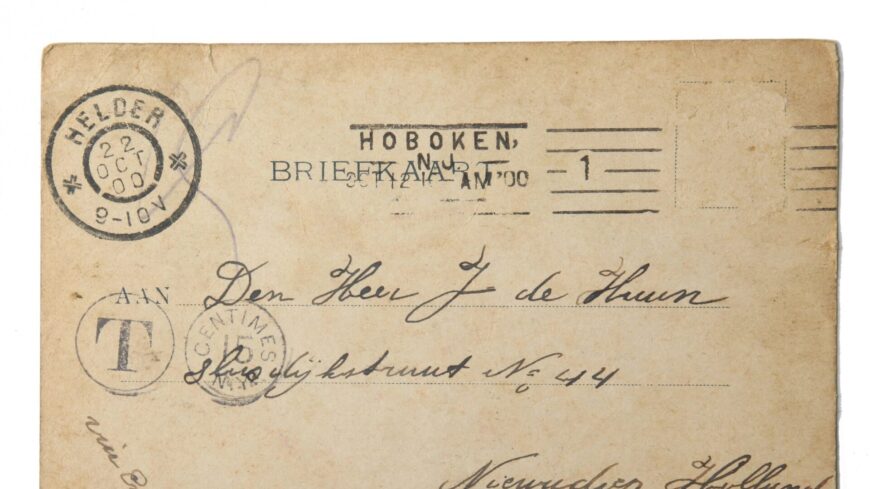 HELDER
22
OCT
00
9-10V
HOBOKEN,
N.J.
OCT 12 AM '00
1
BRIEFKAART
AAN Den Heer J de Huun
T
CENTIMES
15
N.Y.
Sluisdijkstraat No 44
Nieuwediep Holland
via